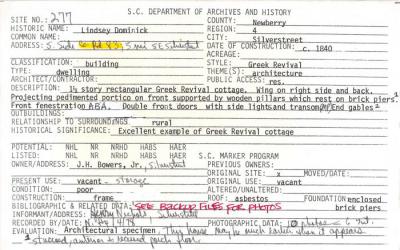 S.C. DEPARTMENT OF ARCHIVES AND HISTORY
SITE NO.: 277
COUNTY: Newberry
HISTORIC NAME: Lindsey Dominick
REGION: 4
COMMON NAME:
CITY: Silverstreet
ADDRESS: S. Side Co Rd 83, .5 mi SE Silverstreet
DATE OF CONSTRUCTION: c. 1840
OR ACREAGE:
CLASSIFICATION: building
STYLE: Greek Revival
TYPE: dwelling
THEME(S): architecture
ARCHITECT/CONTRACTOR:
PUBLIC ACCESS: res.
DESCRIPTION: 1½ story rectangular Greek Revival cottage. Wing on right side and back.
Projecting pedimented portico on front supported by wooden pillars which rest on brick piers.
Front fenestration ABA. Double front doors with side lights and transom. End gables
OUTBUILDINGS:
RELATIONSHIP TO SURROUNDINGS: rural
HISTORICAL SIGNIFICANCE: Excellent example of Greek Revival cottage
POTENTIAL: NHL NR NRHD HABS HAER
LISTED: NHL NR NRHD HABS HAER S.C. MARKER PROGRAM
OWNER/ADDRESS: J.H. Bowers, Jr., Silverstreet
PREVIOUS OWNERS:
ORIGINAL SITE: x MOVED/DATE:
PRESENT USE: vacant - storage
ORIGINAL USE: vacant
CONDITION: poor
ALTERED/UNALTERED:
CONSTRUCTION: frame
ROOF: asbestos FOUNDATION: enclosed
brick piers
BIBLIOGRAPHIC & RELATED DATA: SEE BACKUP FILES FOR PHOTOS
INFORMANT/ADDRESS: Nichols, Silverstreet
RECORDED BY/DATE: 4/79
PHOTOGRAPHIC DATA: photos
EVALUATION: Architectural specimen. This house may be much earlier when it appears
stuccoed, anterior & recessed porch floor